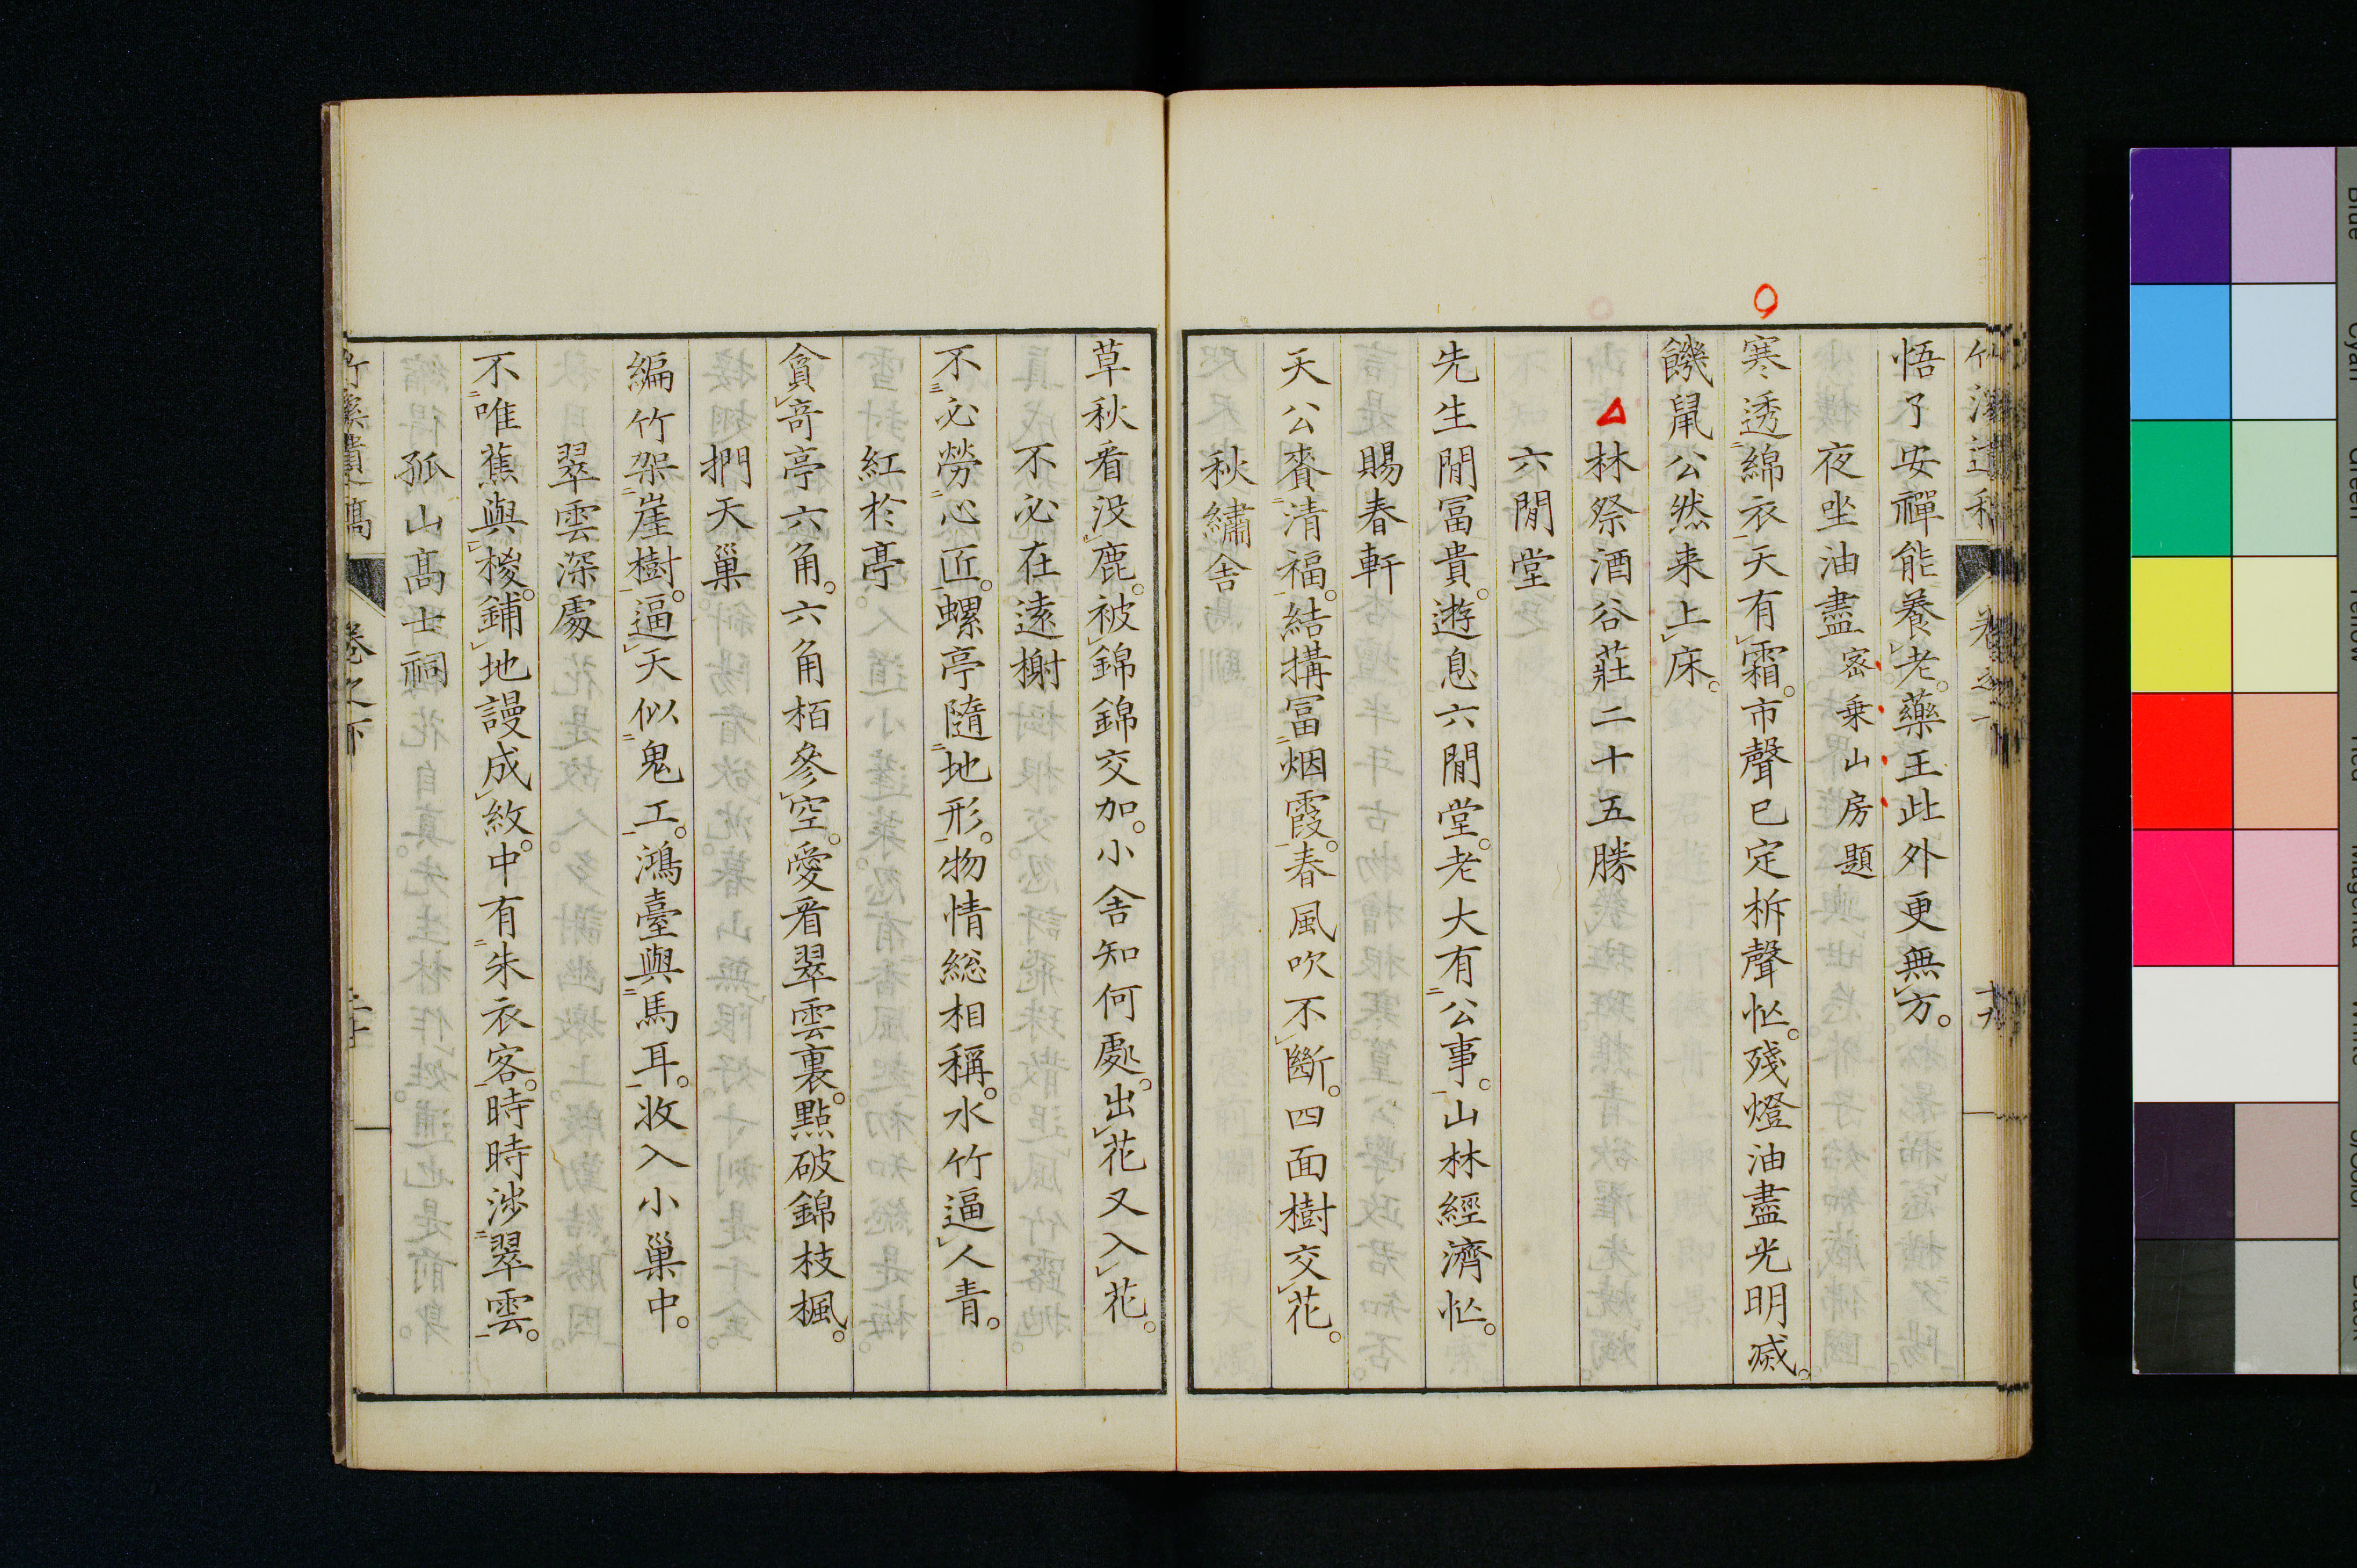 悟了安禪能養老。藥王此外更無方。
夜坐油盡 密乗山房題
寒透綿衣天有霜。市聲已定柝聲忙。殘燈油盡光明滅。
饑鼠公然来上床。
林祭酒谷莊二十五勝
六閒堂
先生閒冨貴。遊息六閒堂。老大有公事。山林經濟忙。
賜春軒
天公賚清福。結搆冨烟霞。春風吹不斷。四面樹交花。
秋繡舎
草秋看没鹿。被錦錦交加。小舎知何處。出花又入花。
不必在遠榭
不必勞心匠。螺亭隨地形。物情総相稱。水竹逼人青。
紅於亭
貪奇亭六角。六角栢参空。愛看翠雲裏。點破錦枝楓。
捫天巢
編竹架崖樹。逼天似鬼工。鴻臺與馬耳。收入小巢中。
翠雲深處
不唯蕉與椶。鋪地謾成紋。中有朱衣客。時時渉翠雲。
孤山髙士祠
卷之下